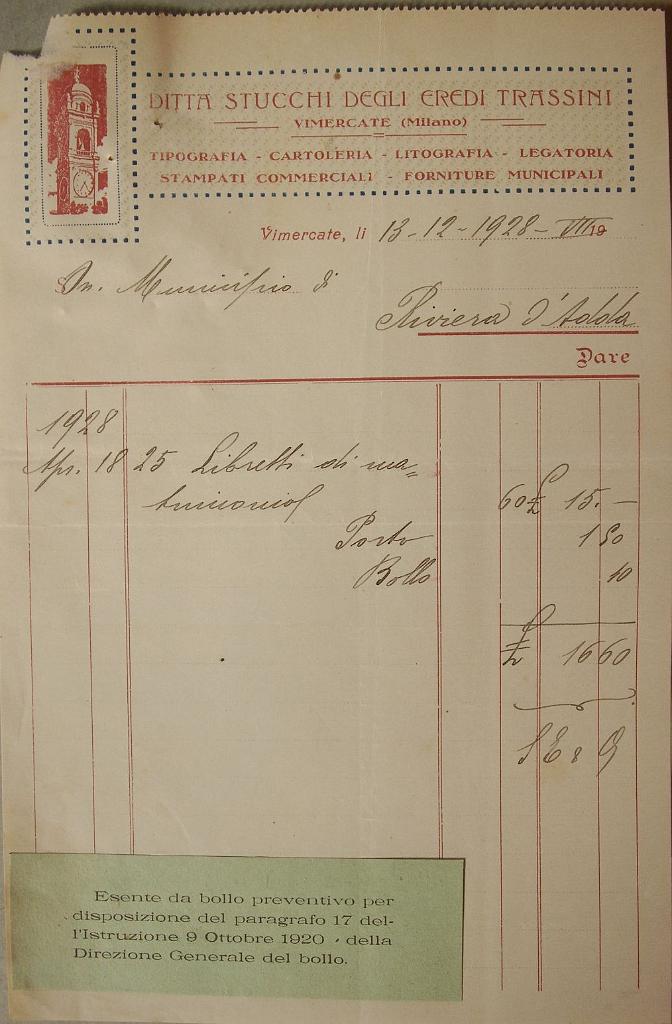 DITTA STUCCHI DEGLI EREDI TRASSINI
VIMERCATE (Milano)
TIPOGRAFIA - CARTOLERIA - LITOGRAFIA - LEGATORIA
STAMPATI COMMERCIALI - FORNITURE MUNICIPALI
Vimercate, li 13-12-1928-VII 19
On. Municipio di
Riviera d'Adda
Dare
1928
Apr. 18 25 Libretti di ma=
trimonio 60 £ 15.—
Porto 1 50
Bollo 10
£ 16 60
S E & O
Esente da bollo preventivo per
disposizione del paragrafo 17 del-
l'Istruzione 9 Ottobre 1920 - della
Direzione Generale del bollo.